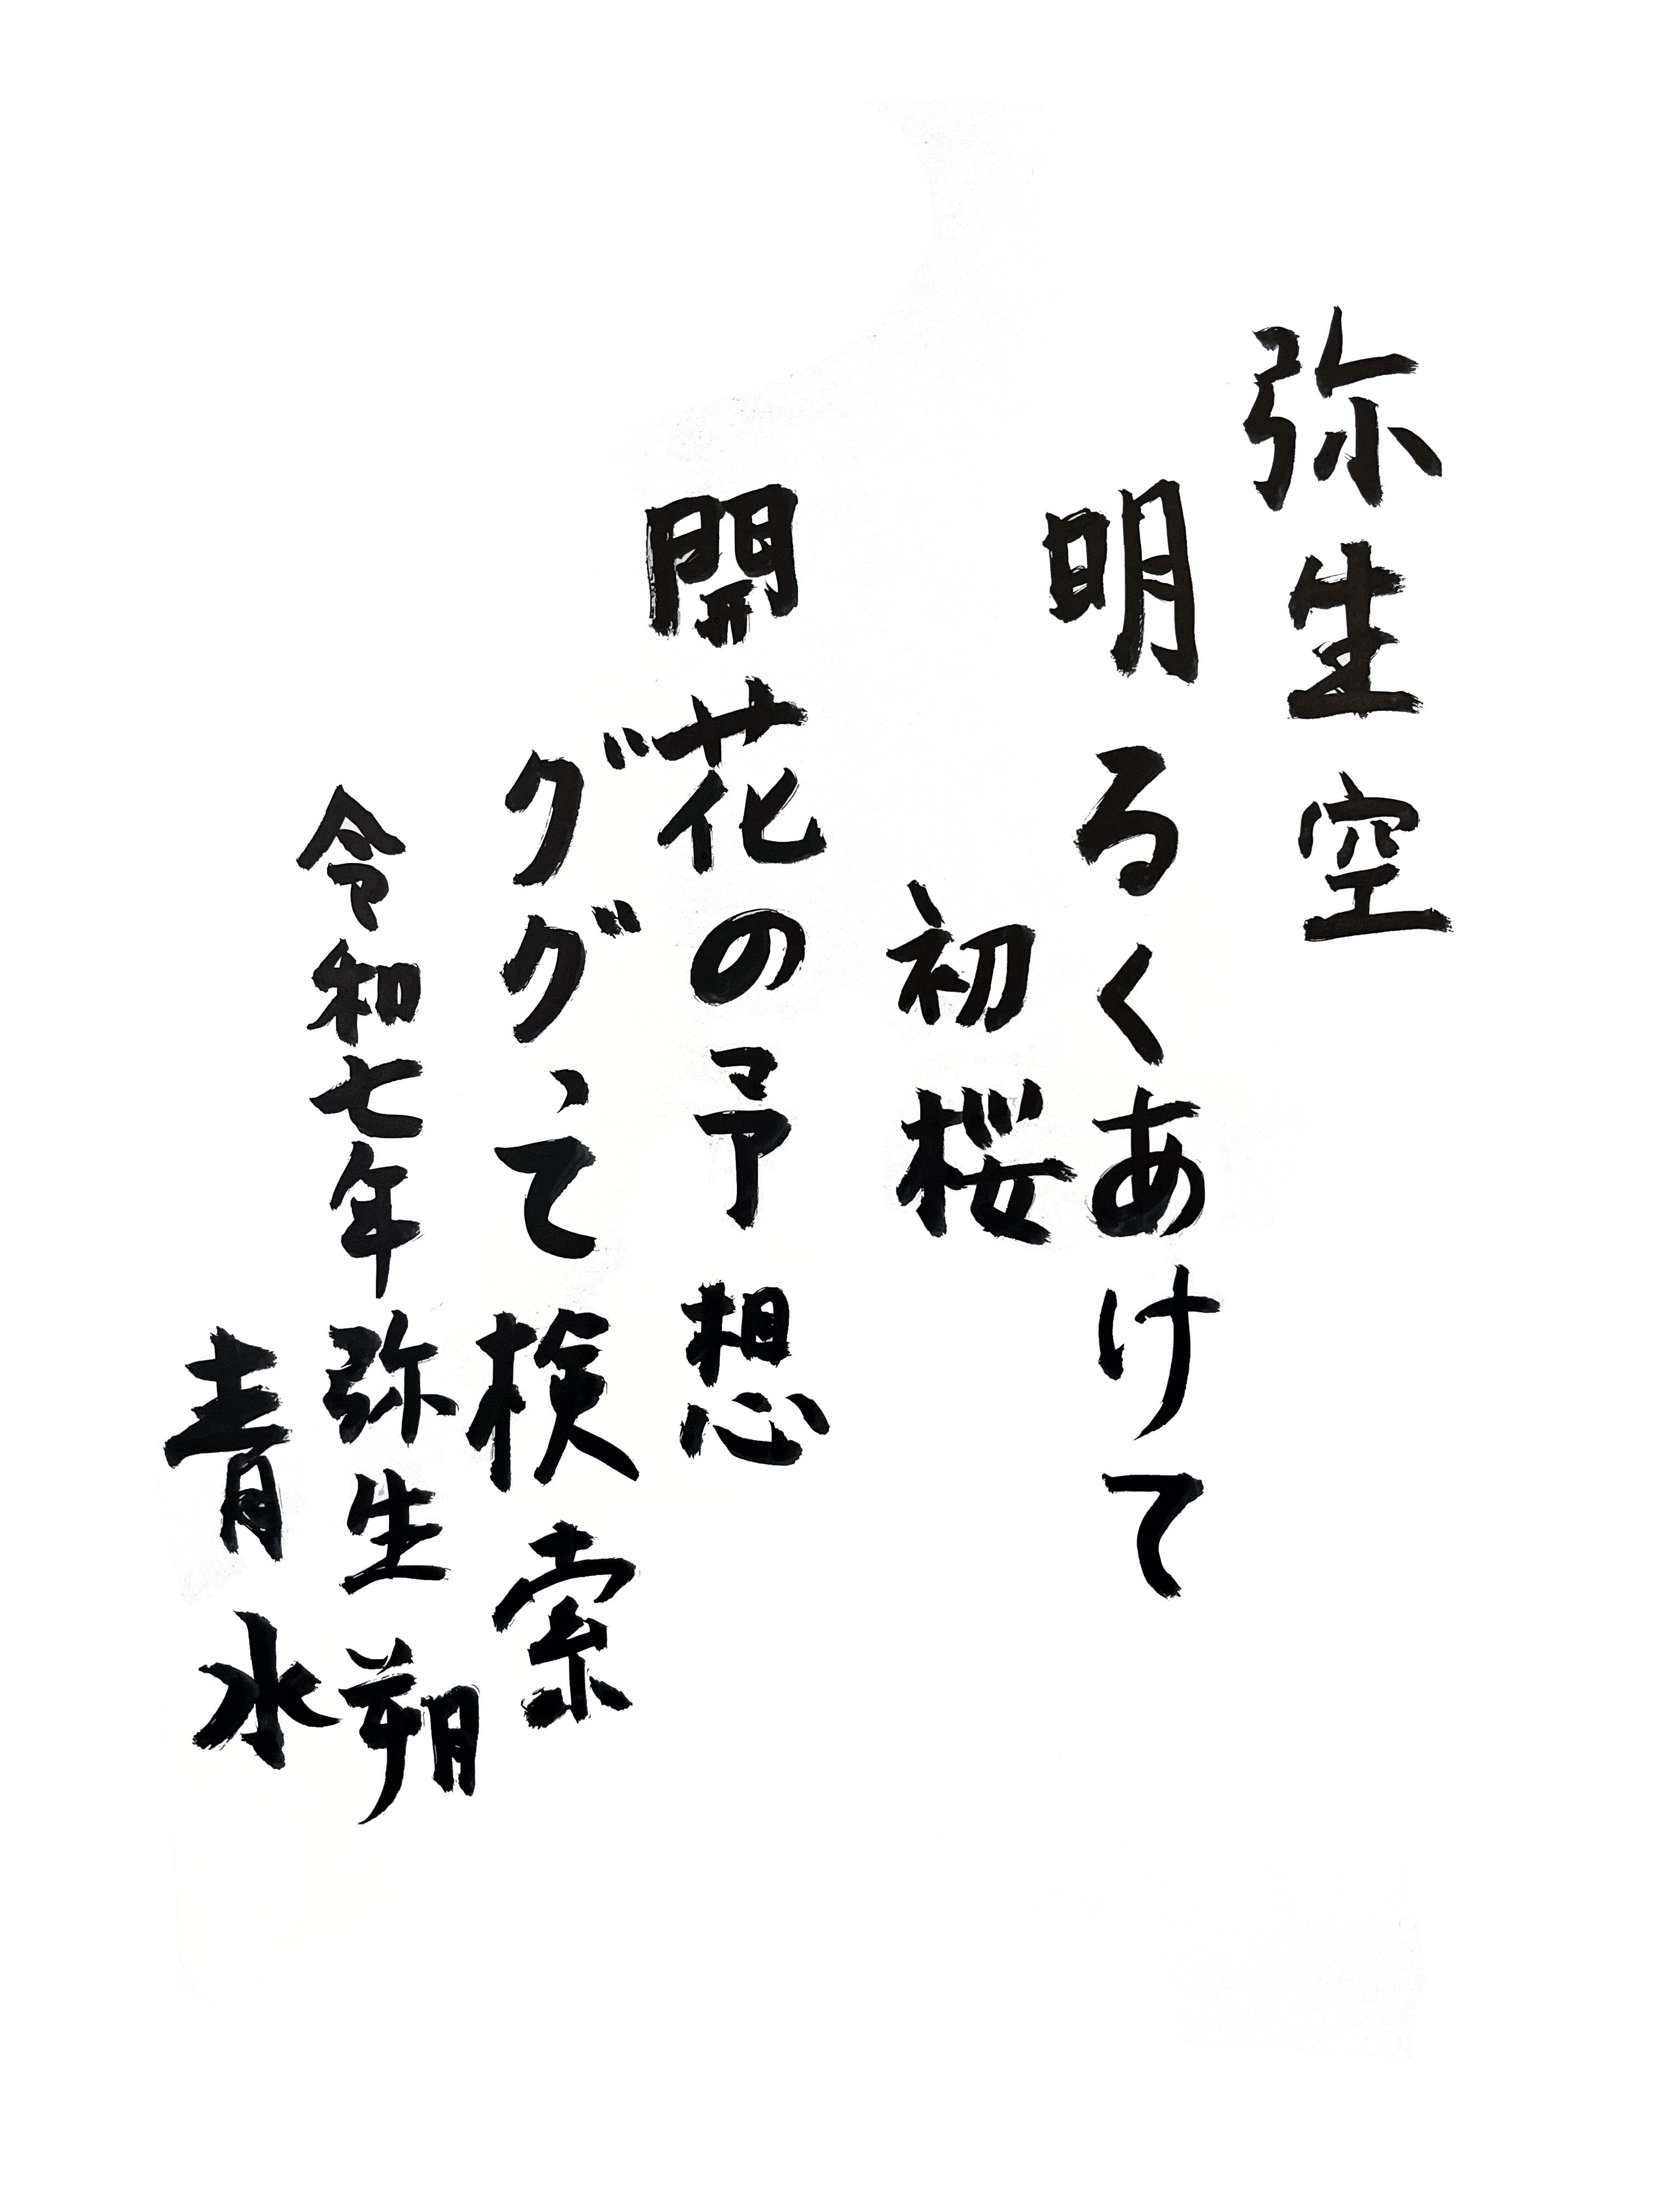 弥生空
明るくあけて
初桜
開花の予想
ググって検索
令和七年弥生朔
青水